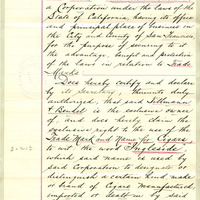 a Corporation under the Laws of the
State of California, having its office
and principal place of business in
the City and County of San Francisco
for the purpose of securing to it
the advantage, benefit and protection
of the laws in relation to Trade
Marks
Does hereby certify and declare
by its Secretary, thereunto duly
authorized, that said Tillmann
& Bendel is the exclusive owner
of, and does hereby claim the
exclusive right to the use of the
Trade Mark and Name for Cigars
to wit: the word "Ingleside"
which said name is used by
said Corporation to designate or
distinguish a certain kind, make
or brand of Cigars manufactured,
imported or dealt in by said